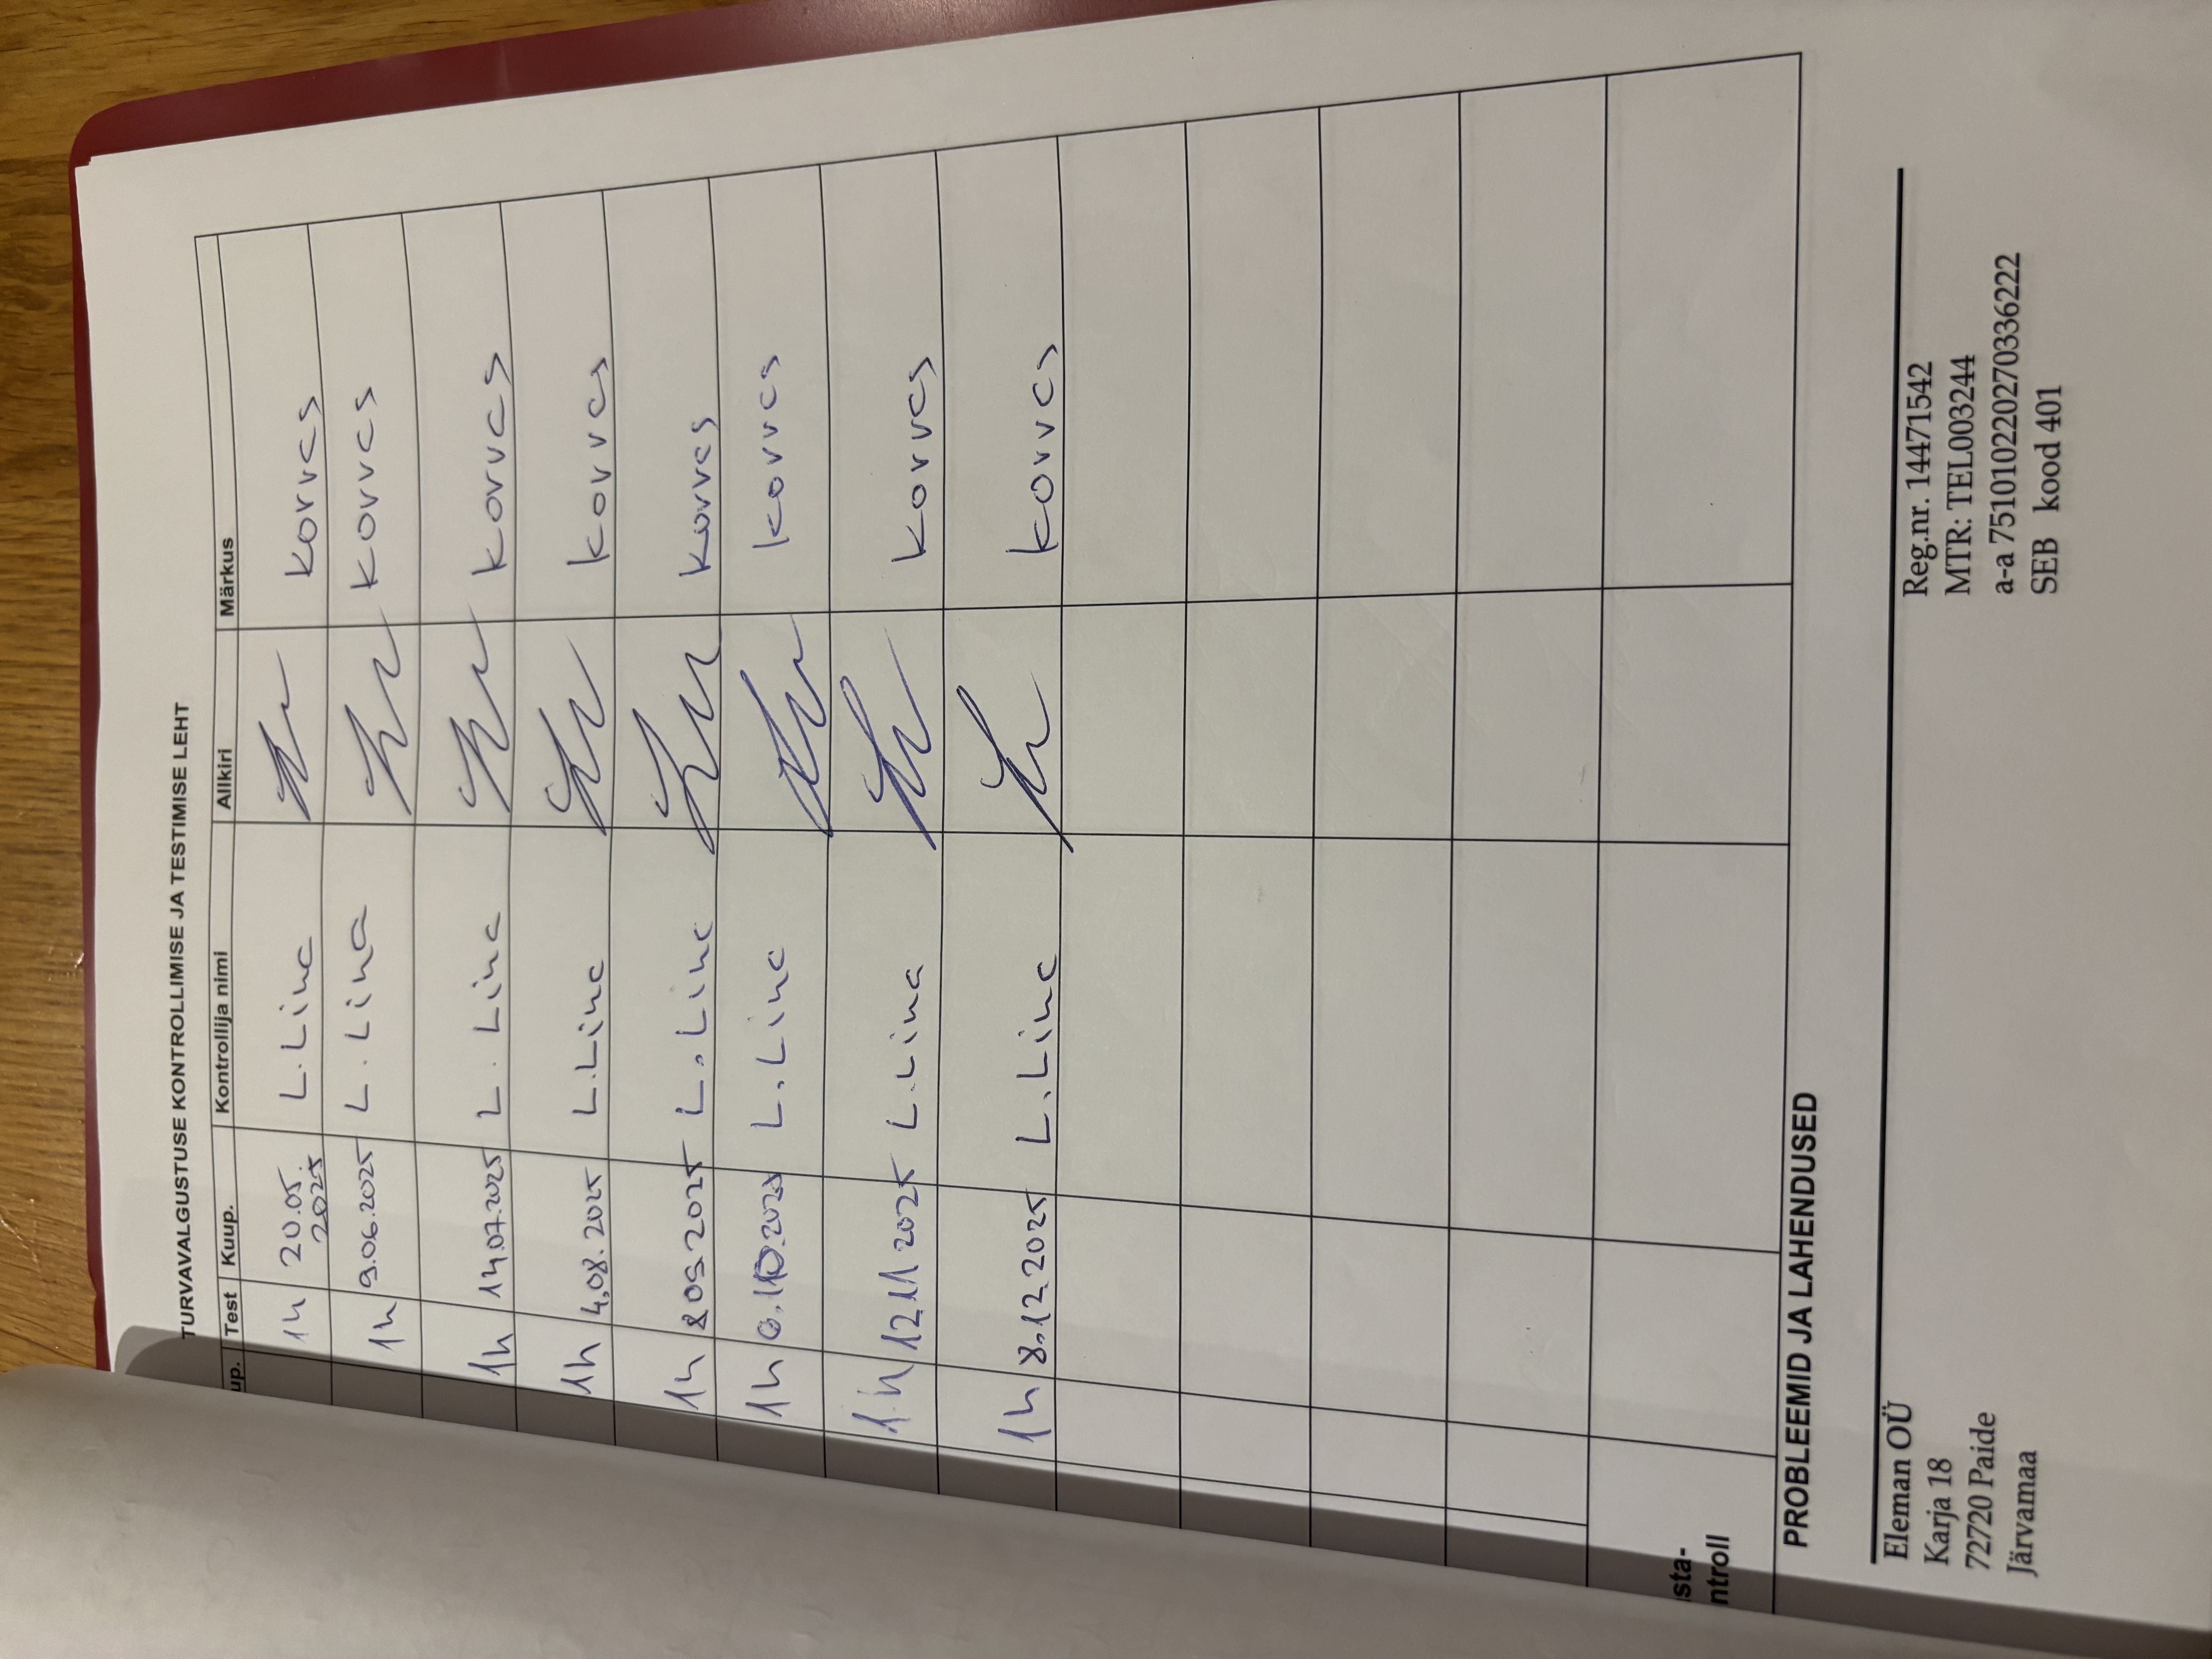 TURVAVALGUSTUSE KONTROLLIMISE JA TESTIMISE LEHT
up. Test Kuup. Kontrollija nimi Allkiri Märkus
1h 20.05.2025 L.Lina korras
1h 9.06.2025 L.Lina korras
1h 14.07.2025 L.Lina korras
1h 4.08.2025 L.Lina korras
1h 8.09.2025 L.Lina korras
1h 6.10.2025 L.Lina korras
1h 12.11.2025 L.Lina korras
1h 8.12.2025 L.Lina korras
sta-
ntroll
PROBLEEMID JA LAHENDUSED
Eleman OÜ Reg.nr. 14471542
Karja 18 MTR: TEL003244
72720 Paide a-a 751010220270336222
Järvamaa SEB kood 401